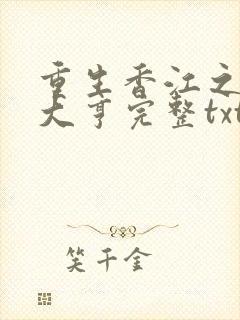 重生香江之
大亨完整txt
笑千金